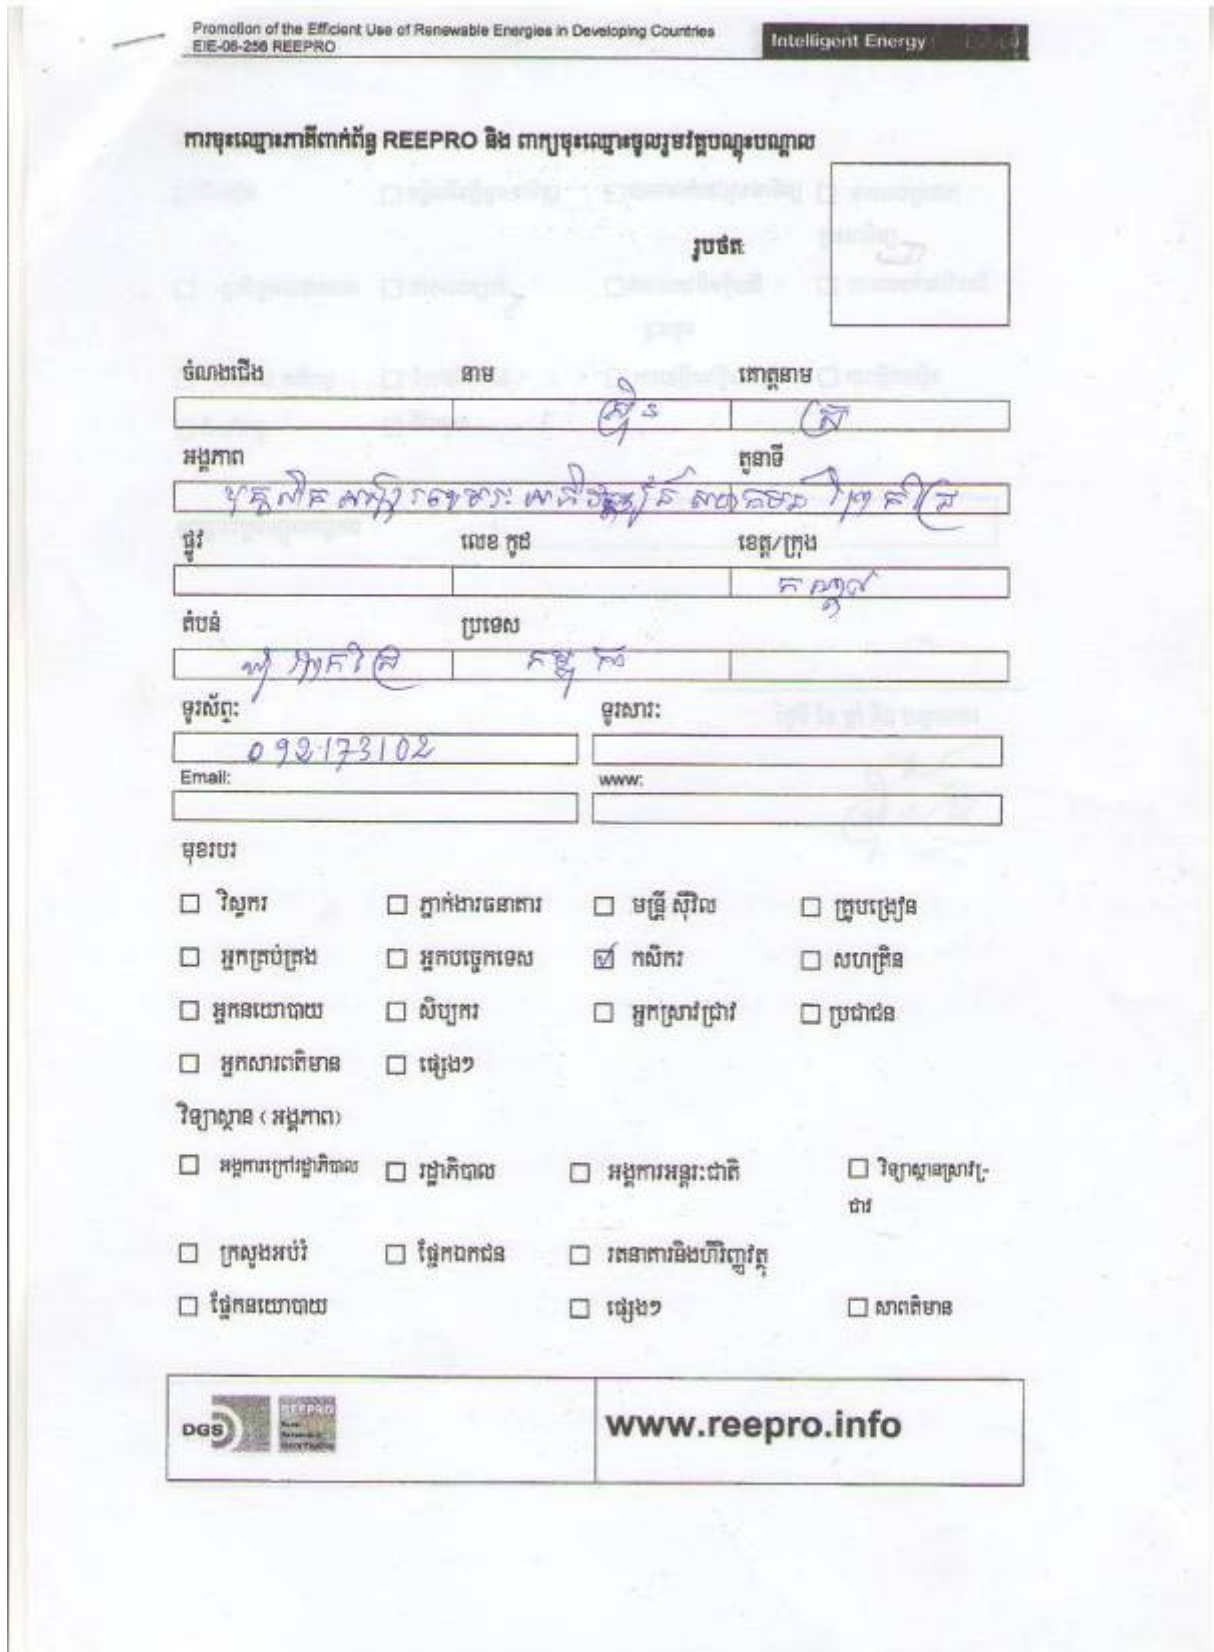 Promotion of the Efficient Use of Renewable Energies in Developing Countries
EIE-06-256 REEPRO
Intelligent Energy
ការចុះឈ្មោះភាគីពាក់ព័ន្ធ REEPRO និង ពាក្យចុះឈ្មោះចូលរួមវគ្គបណ្តុះបណ្តាល
រូបថត:
ចំណងជើង នាម គោត្តនាម
អង្គភាព តួនាទី
ផ្លូវ លេខ កូដ ខេត្ត/ក្រុង
កណ្តាល
តំបន់ ប្រទេស
កម្ពុជា
ទូរស័ព្ទ: ទូរសារ:
092173102
Email: www:
មុខរបរ
☐ វិស្វករ ☐ ភ្នាក់ងារធនាគារ ☐ មន្ត្រី ស៊ីវិល ☐ គ្រូបង្រៀន
☐ អ្នកគ្រប់គ្រង ☐ អ្នកបច្ចេកទេស ☑ កសិករ ☐ សហគ្រិន
☐ អ្នកនយោបាយ ☐ សិប្បករ ☐ អ្នកស្រាវជ្រាវ ☐ ប្រជាជន
☐ អ្នកសារពត៌មាន ☐ ផ្សេងៗ
វិទ្យាស្ថាន (អង្គភាព)
☐ អង្គការក្រៅរដ្ឋាភិបាល ☐ រដ្ឋាភិបាល ☐ អង្គការអន្តរ:ជាតិ ☐ វិទ្យាស្ថានស្រាវជ្រ-
ជាវ
☐ ក្រសួងអប់រំ ☐ ផ្នែកឯកជន ☐ រតនាគារនិងហិរិញ្ញវត្ថុ
☐ ផ្នែកនយោបាយ ☐ ផ្សេងៗ ☐ សាពត៌មាន
DGS REEPRO www.reepro.info